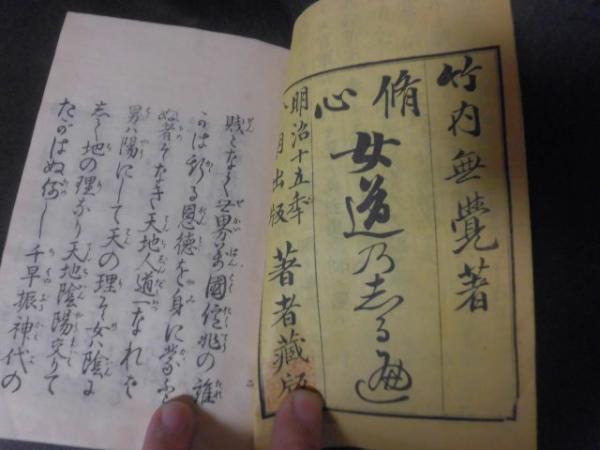 竹内無覺著
脩心
女道乃志る遍
明治十五年
月出版
著者藏版
賤となく世界萬國億兆の誰
かは斯る恩徳を身に蒙ふら
ぬ者そなき天地人道一なれハ
男ハ陽にして天の理そ女ハ陰に
志て地の理なり天地陰陽交りて
たがはぬ
し千早振神代の
二